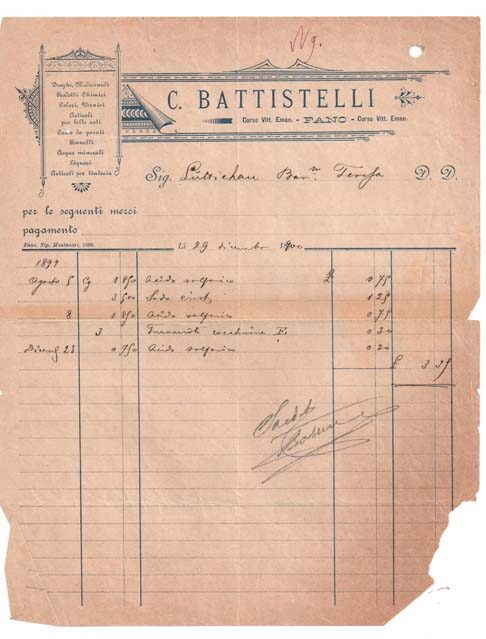 Droghe, Medicinali
Prodotti Chimici
Colori, Vernici
Articoli
per belle arti
Carta da parati
Pennelli
Acque minerali
Liquori
Articoli per tintoria
C. BATTISTELLI
Corso Vitt. Eman. - FANO - Corso Vitt. Eman.
Sig. Luttichau Bar.ⁿ Teresa D. D.
per le seguenti merci
pagamento
Fano, Tip. Montanari, 1899.
Li 29 dicembre 1900
1899
Agosto 5 Cg 1.850 Acido solforico £ 0.75
3.500 Soda 1.25
8 1.850 Acido solforico 0.75
3 0.30
23 0.750 Acido solforico 0.30
£ 3 35
Saldato